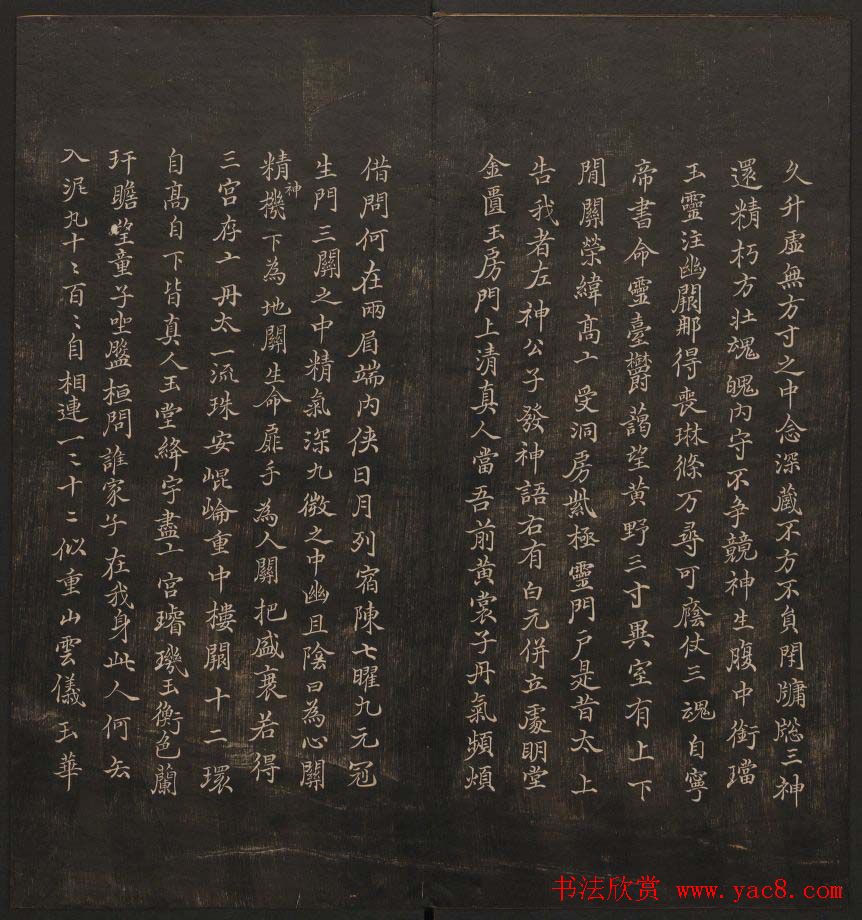 久升虛無方寸之中念深藏不方不負閇牖牕三神
還精朽方壯魂魄內守不争競神生腹中銜璫
玉靈注幽闕那得喪琳條万尋可廕仗三魂自寧
帝書命靈臺欝藹望黄野三寸異室有上下
閒關榮緯高丄受洞房紫極靈門户是昔太上
告我者左神公子發神語右有白元併立處明堂
金匱玉房門上清真人當吾前黄裳子丹氣頻煩
借問何在兩眉端內俠日月列宿陳七曜九元冠
生門三關之中精氣深九微之中幽且陰口為心關
精神機下為地關生命扉手為人關把盛衰若得
三宫存丄丹太一流珠安崐崘重中樓闕十二環
自高自下皆真人玉堂絳宇盡丄宫璿璣玉衡色蘭
玕瞻望童子坐盤桓問誰家子在我身此人何去
入泥丸十〻百〻自相連一〻十二似重山雲儀玉華
书法欣赏 www.yac8.com